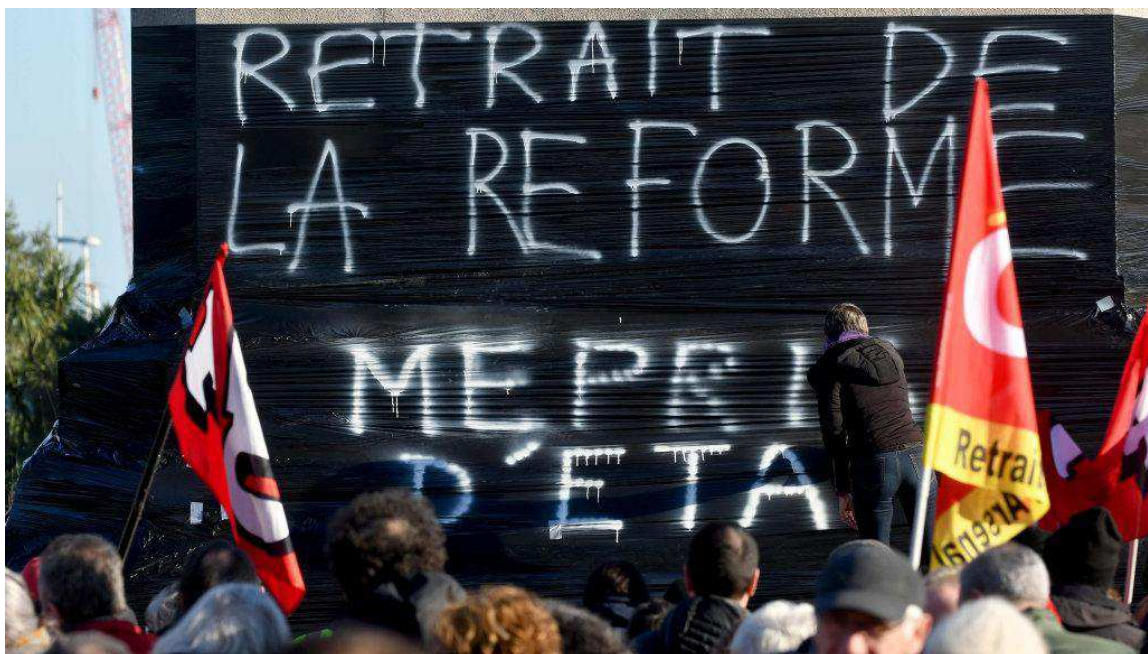 RETRAIT DE
LA REFORME
MEPRI
D'ETA
Retrai